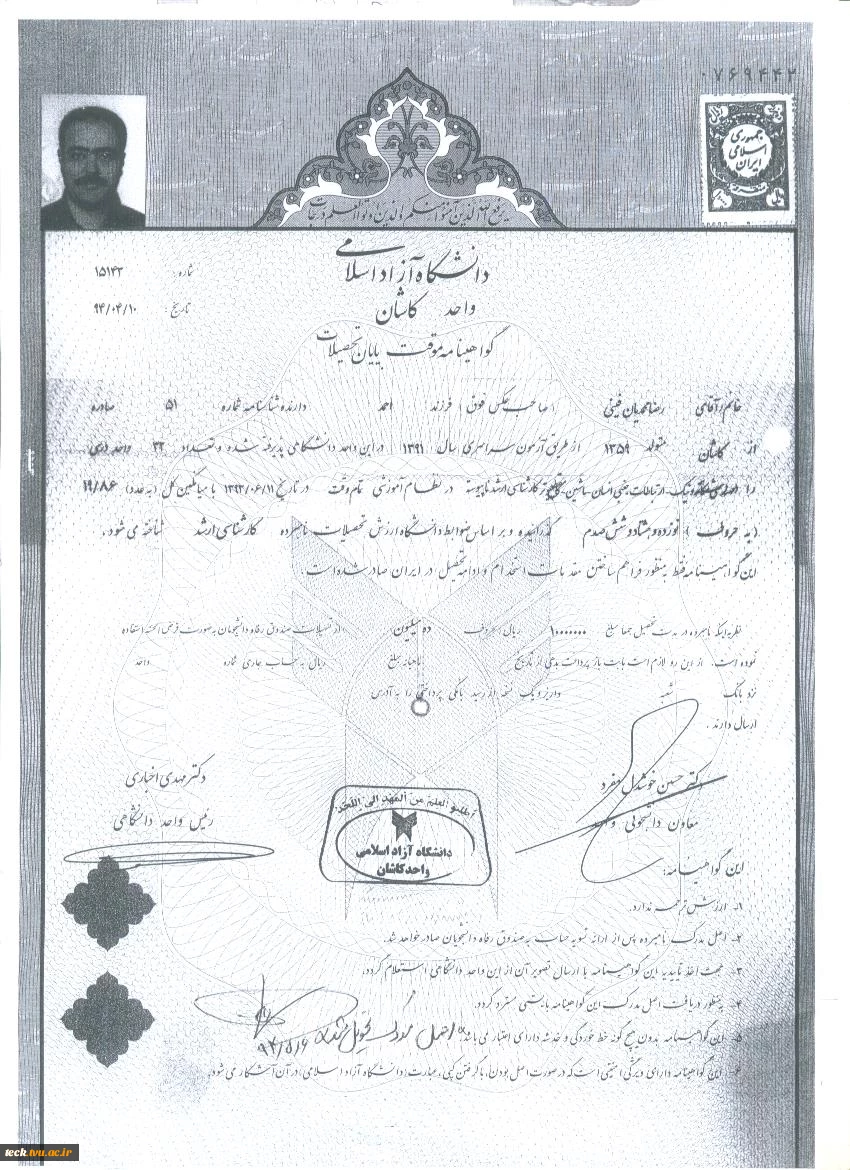 ۰۷۶۹۴۴۲
جمهوری
اسلامی
ایران
یرفع الله الذین آمنوا منکم و الذین اوتوا العلم درجات
دانشگاه آزاد اسلامی
واحد کاشان
گواهینامه موقت پایان تحصیلات
شماره: ۱۵۱۴۳
تاریخ: ۹۴/۰۴/۱۰
خانم/آقای رضا محمدیان فینی (صاحب عکس فوق) فرزند احمد دارنده شناسنامه شماره ۵۱ صادره
از کاشان متولد ۱۳۵۹ از طریق آزمون سراسری سال ۱۳۹۱ در این واحد دانشگاهی پذیرفته شده و تعداد ۳۲ واحد درسی
را در نظام آموزشی تمام وقت در تاریخ ۱۳۹۳/۰۶/۱۱ با میانگین کل (به عدد) ۱۹/۸۶
(به حروف) نوزده و هشتاد و شش صدم گذرانیده و بر اساس ضوابط دانشگاه ارزش تحصیلات نامبرده کارشناسی ارشد شناخته می شود.
این گواهینامه فقط به منظور فراهم ساختن مقدمات استخدام و ادامه تحصیل در ایران صادر شده است.
نظر به اینکه نامبرده در مدت تحصیل جمعا مبلغ ۱۰۰۰۰۰۰۰ ریال بحروف ده میلیون از تسهیلات صندوق رفاه دانشجویان به صورت قرض الحسنه استفاده
نموده است. از این رو لازم است بابت بازپرداخت بدهی از تاریخ ماهیانه مبلغ ریال به حساب جاری شماره واحد
نزد بانک شعبه واریز و یک نسخه از رسید بانکی پرداختی را به آدرس
ارسال دارند.
دکتر حسین خوشدل مفرد
معاون دانشجوئی واحد
دکتر مهدی اخباری
رئیس واحد دانشگاهی
اطلبو العلم من المهد الی اللحد
دانشگاه آزاد اسلامی
واحد کاشان
این گواهینامه:
۱- ارزش ترجمه ندارد.
۲- اصل مدرک نامبرده پس از ارائه تسویه حساب به صندوق رفاه دانشجویان صادر خواهد شد.
۳- جهت اخذ تأییدیه این گواهینامه با ارسال تصویر آن از این واحد دانشگاهی استعلام گردد.
۴- به منظور دریافت اصل مدرک این گواهینامه بایستی مسترد گردد.
۵- این گواهینامه بدون هیچ گونه خط خوردگی و خدشه دارای اعتبار می باشد.
اصل مدرک تحویل گردید
۹۴/۵/۶
۶- این گواهینامه دارای ویژگی امنیتی است که در صورت اصل بودن، با گرفتن کپی، عبارت (دانشگاه آزاد اسلامی) در آن آشکار می شود.
teck.tvu.ac.ir